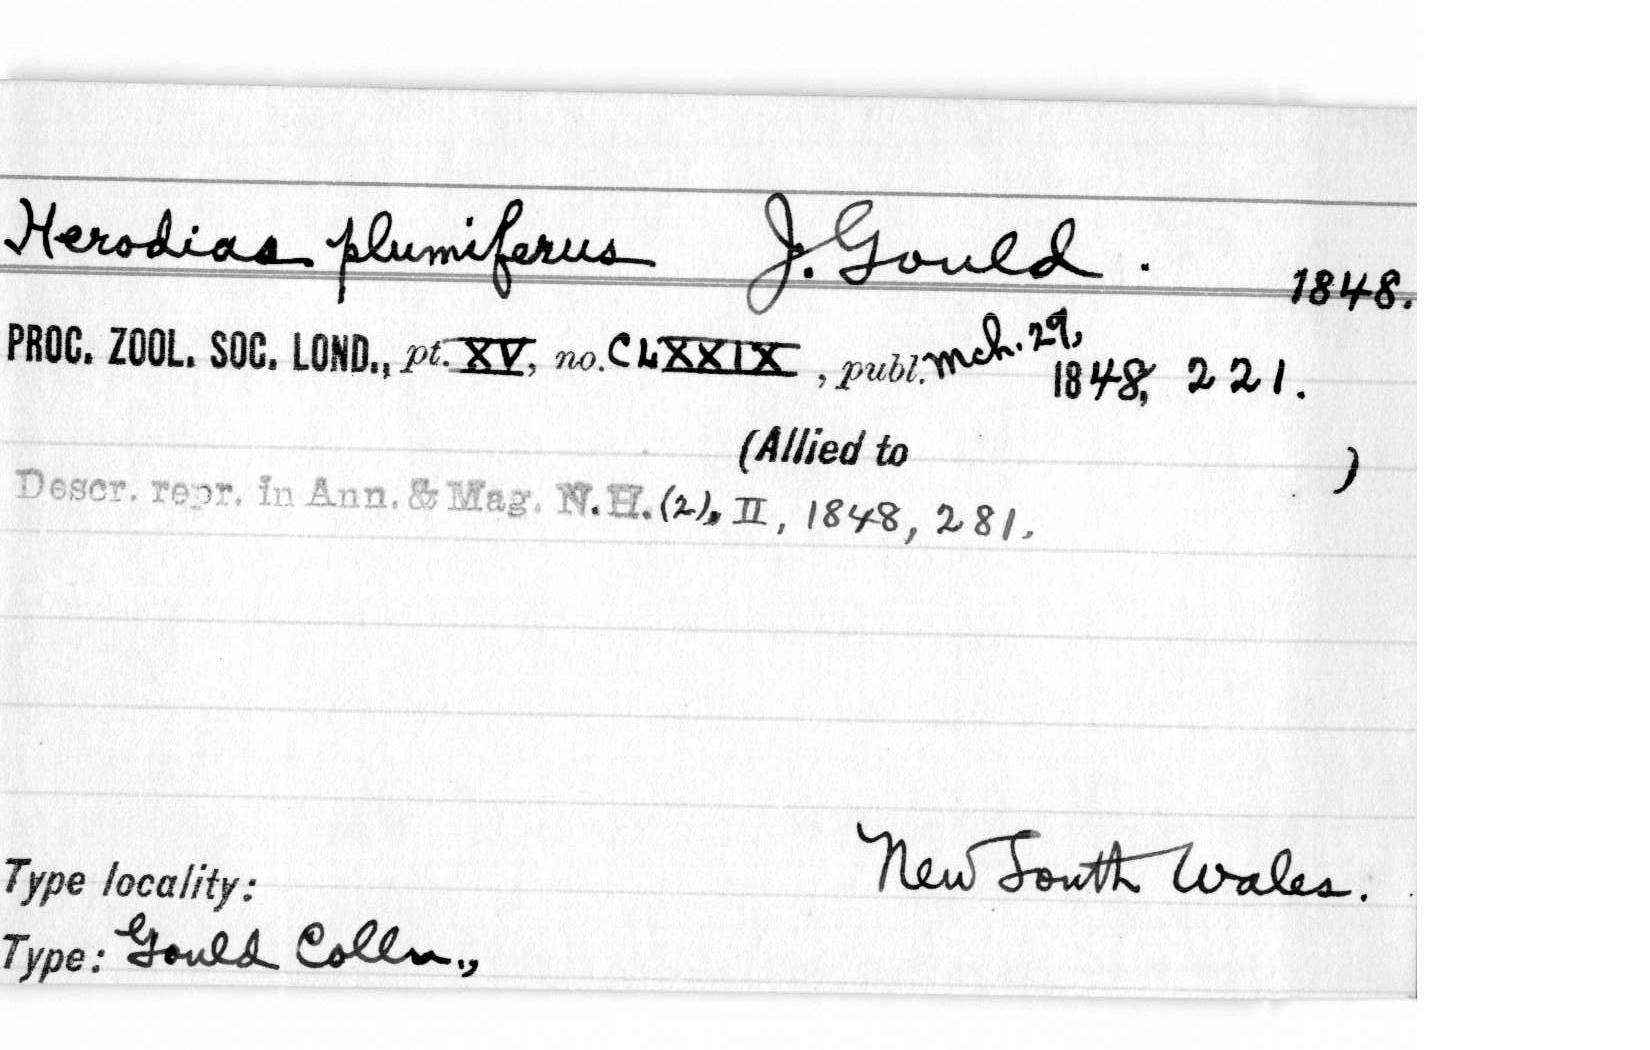 Herodias plumiferus J. Gould. 1848.
PROC. ZOOL. SOC. LOND., pt. XV, no. CLXXIX, publ. Mch. 29, 1848, 221.
(Allied to )
Descr. repr. in Ann. & Mag. N.H. (2), II, 1848, 281.
New South Wales.
Type locality:
Type: Gould Colln.,